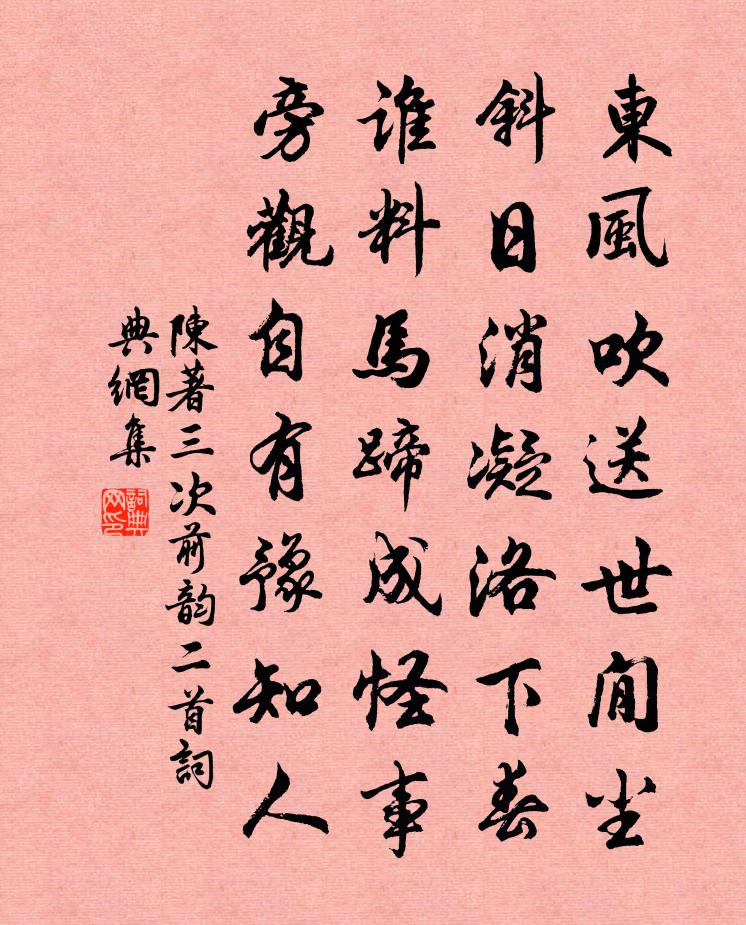 東風吹送世間尘
斜日消凝洛下春
誰料馬蹄成怪事
旁觀自有豫知人
陳著三次前韵二首詞
典網集
詞典
网印